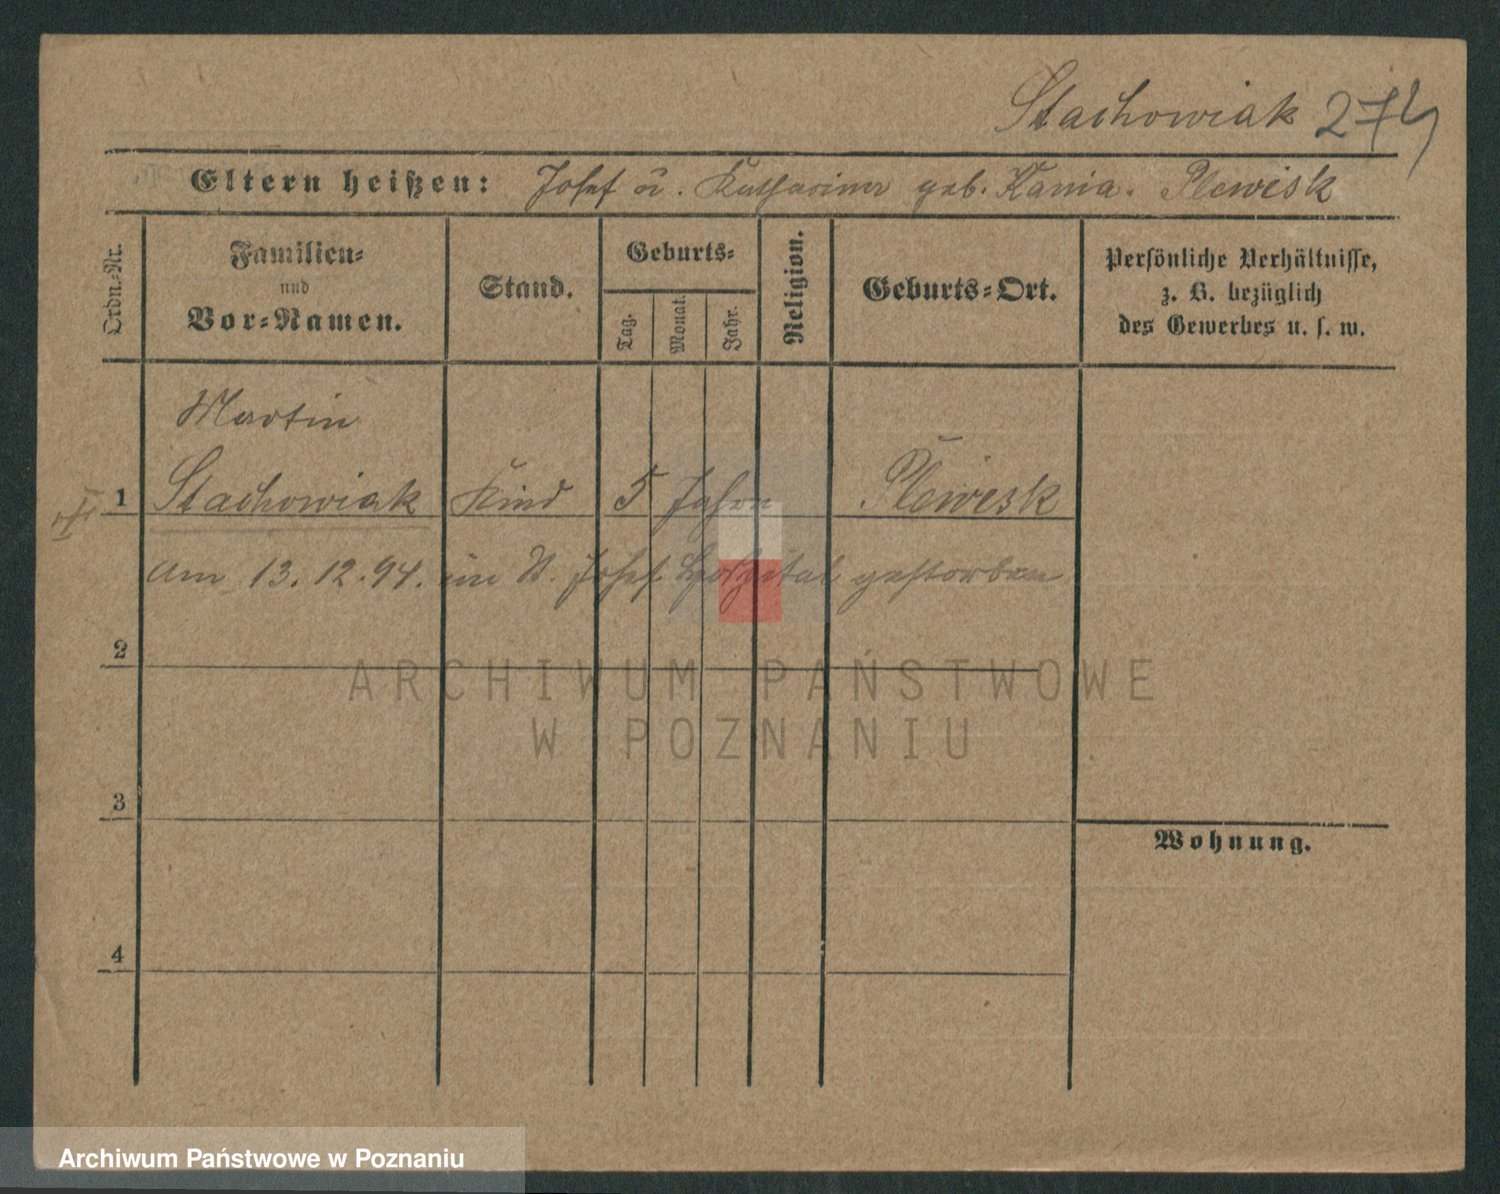 Stachowiak 274
Eltern heißen: Josef u. Katharina geb. Kania. Plewisk
Ordn.-Nr.
Familien-
und
Vor-Namen.
Stand.
Geburts-
Tag.
Monat.
Jahr.
Religion.
Geburts-Ort.
Persönliche Verhältnisse,
z. B. bezüglich
des Gewerbes u. s. w.
Martin
1 Stachowiak Kind 5 Jahre Plewisk
am 13.12.94. im St. Josef Hospital gestorben
2
ARCHIWUM PAŃSTWOWE
W POZNANIU
3
Wohnung.
4
Archiwum Państwowe w Poznaniu